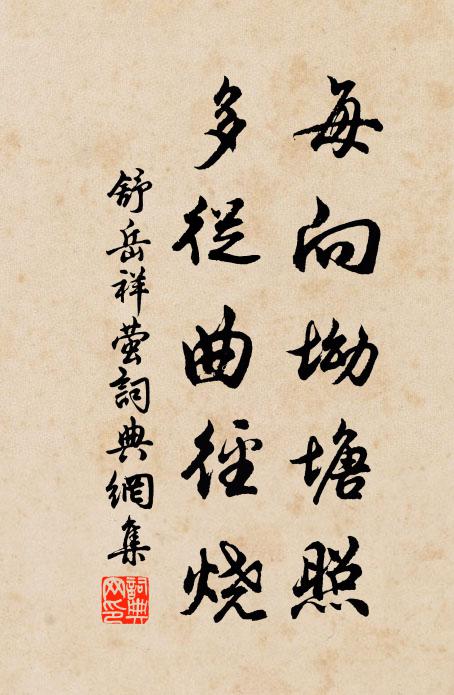 每向坳塘照
多從曲徑烧
舒岳祥萤詞典網集
詞典網印